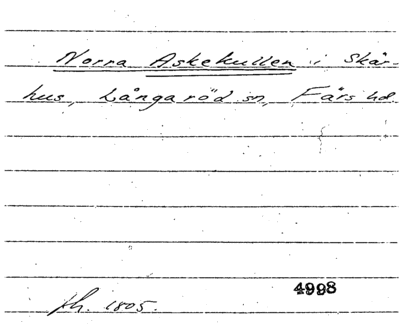 Norra Askekullen i Skär-
hus, Långaröd sn, Färs hd.
4998
fh. 1805.